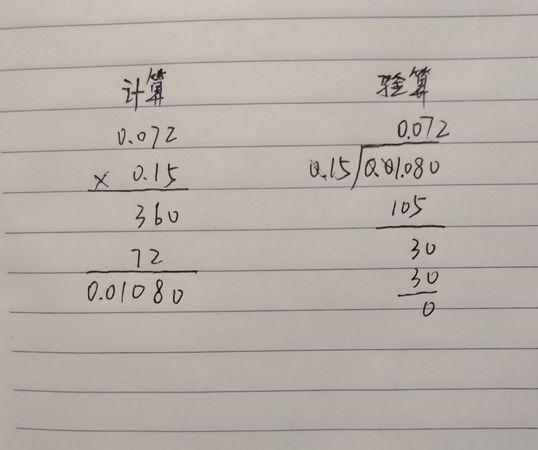 计算
0.072
× 0.15
360
72
0.01080
验算
0.072
0.15 0.01.080
105
30
30
0